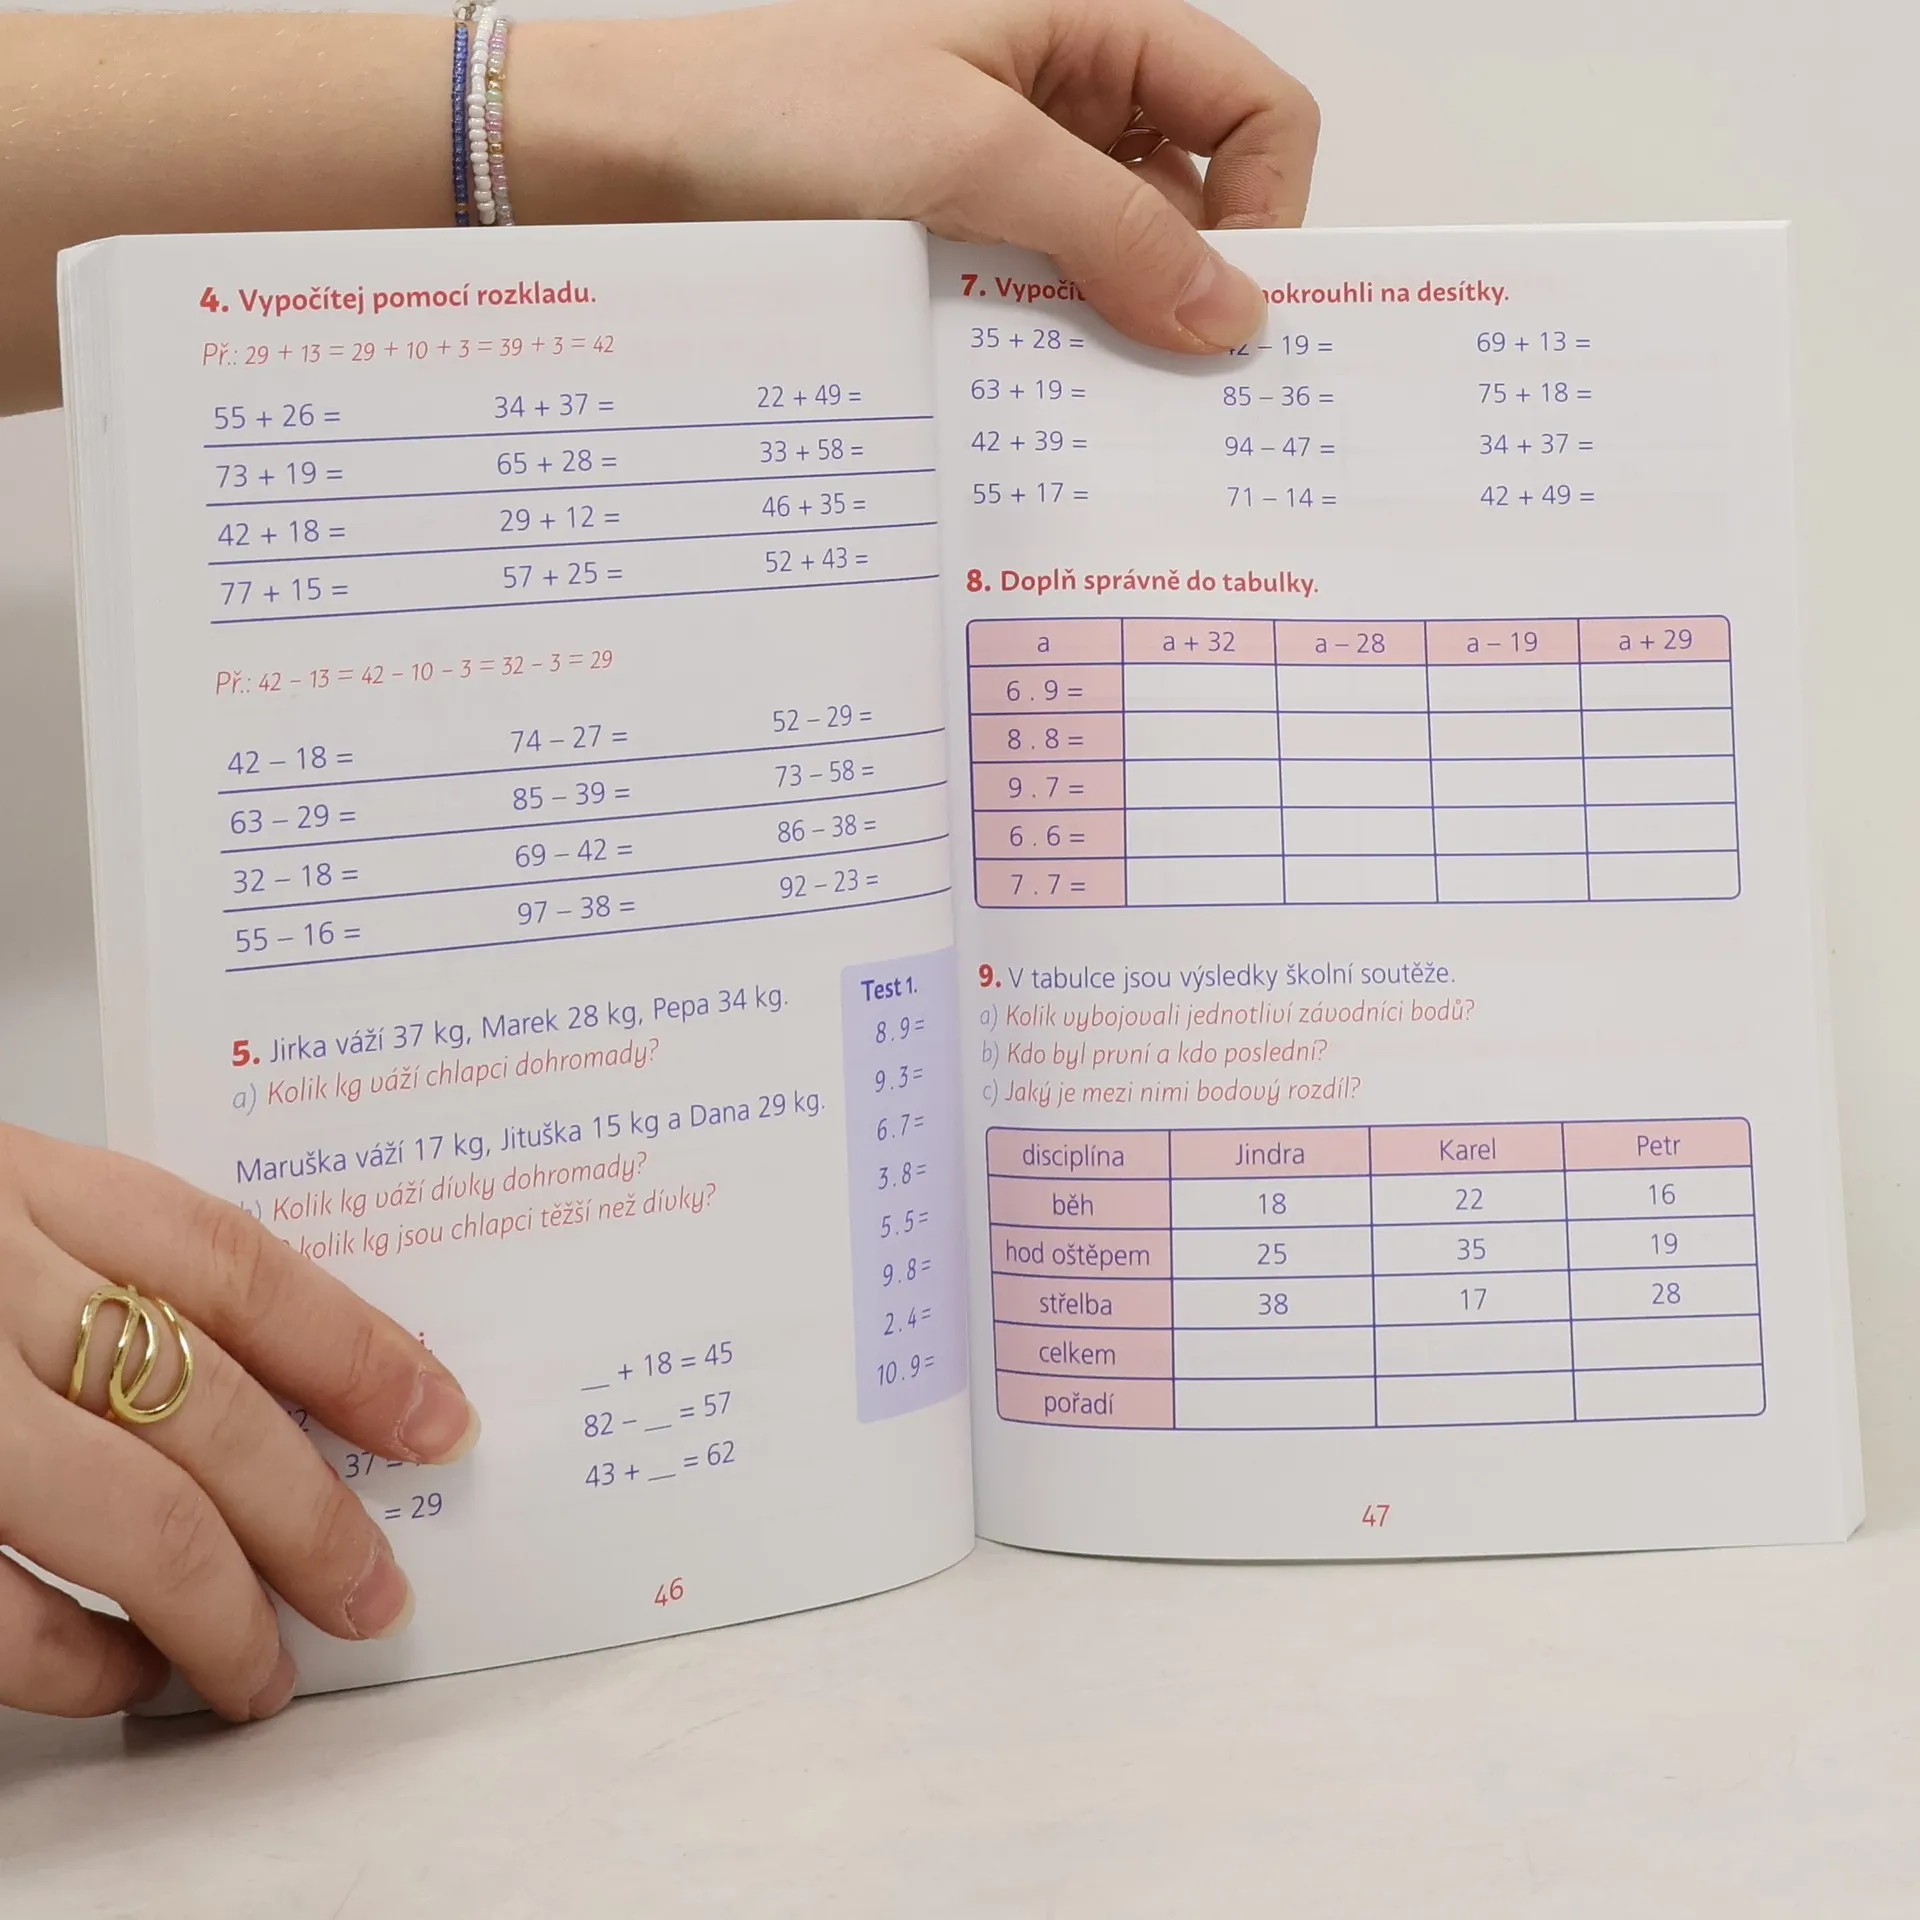 4. Vypočítej pomocí rozkladu.
Př.: 29 + 13 = 29 + 10 + 3 = 39 + 3 = 42
55 + 26 = 34 + 37 = 22 + 49 =
73 + 19 = 65 + 28 = 33 + 58 =
42 + 18 = 29 + 12 = 46 + 35 =
77 + 15 = 57 + 25 = 52 + 43 =
Př.: 42 – 13 = 42 – 10 – 3 = 32 – 3 = 29
42 – 18 = 74 – 27 = 52 – 29 =
63 – 29 = 85 – 39 = 73 – 58 =
32 – 18 = 69 – 42 = 86 – 38 =
55 – 16 = 97 – 38 = 92 – 23 =
5. Jirka váží 37 kg, Marek 28 kg, Pepa 34 kg.
a) Kolik kg váží chlapci dohromady?
Maruška váží 17 kg, Jituška 15 kg a Dana 29 kg.
Kolik kg váží dívky dohromady?
kolik kg jsou chlapci těžší než dívky?
__ + 18 = 45
82 – __ = 57
37
43 + __ = 62
= 29
Test 1.
8 . 9 =
9 . 3 =
6 . 7 =
3 . 8 =
5 . 5 =
9 . 8 =
2 . 4 =
10 . 9 =
46
7. na desítky.
35 + 28 = – 19 = 69 + 13 =
63 + 19 = 85 – 36 = 75 + 18 =
42 + 39 = 94 – 47 = 34 + 37 =
55 + 17 = 71 – 14 = 42 + 49 =
8. Doplň správně do tabulky.
a a + 32 a – 28 a – 19 a + 29
6 . 9 =
8 . 8 =
9 . 7 =
6 . 6 =
7 . 7 =
9. V tabulce jsou výsledky školní soutěže.
a) Kolik vybojovali jednotliví závodníci bodů?
b) Kdo byl první a kdo poslední?
c) Jaký je mezi nimi bodový rozdíl?
disciplína Jindra Karel Petr
běh 18 22 16
hod oštěpem 25 35 19
střelba 38 17 28
celkem
pořadí
47